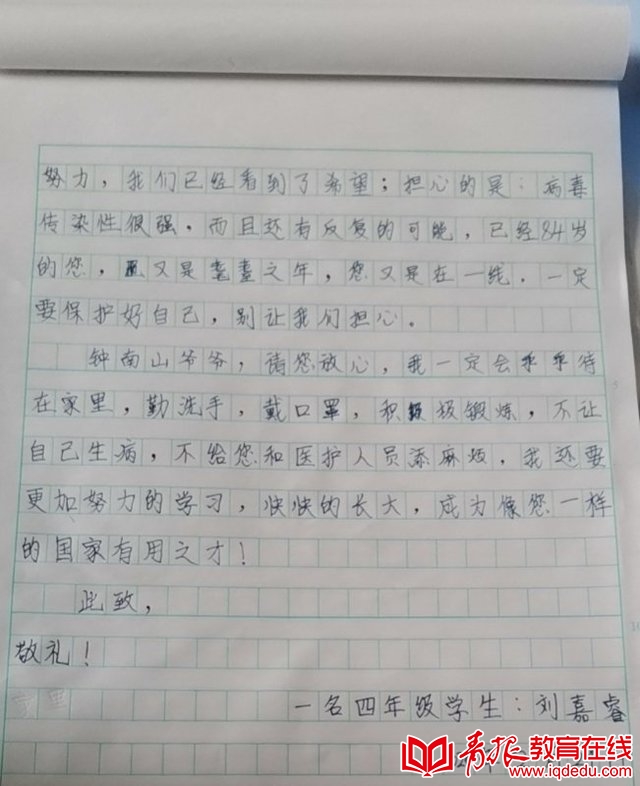 努力，我们已经看到了希望；担心的是：病毒
传染性很强．而且还有反复的可能，已经84岁
的您，又是耄耋之年，您又是在一线．一定
要保护好自己，别让我们担心。
钟南山爷爷，请您放心，我一定会乖乖待
在家里，勤洗手，戴口罩，积极锻炼，不让
自己生病，不给您和医护人员添麻烦，我还要
更加努力的学习，快快的长大，成为像您一样
的国家有用之才！
此致，
敬礼！
一名四年级学生：刘嘉睿
青报教育在线
www.iqdedu.com